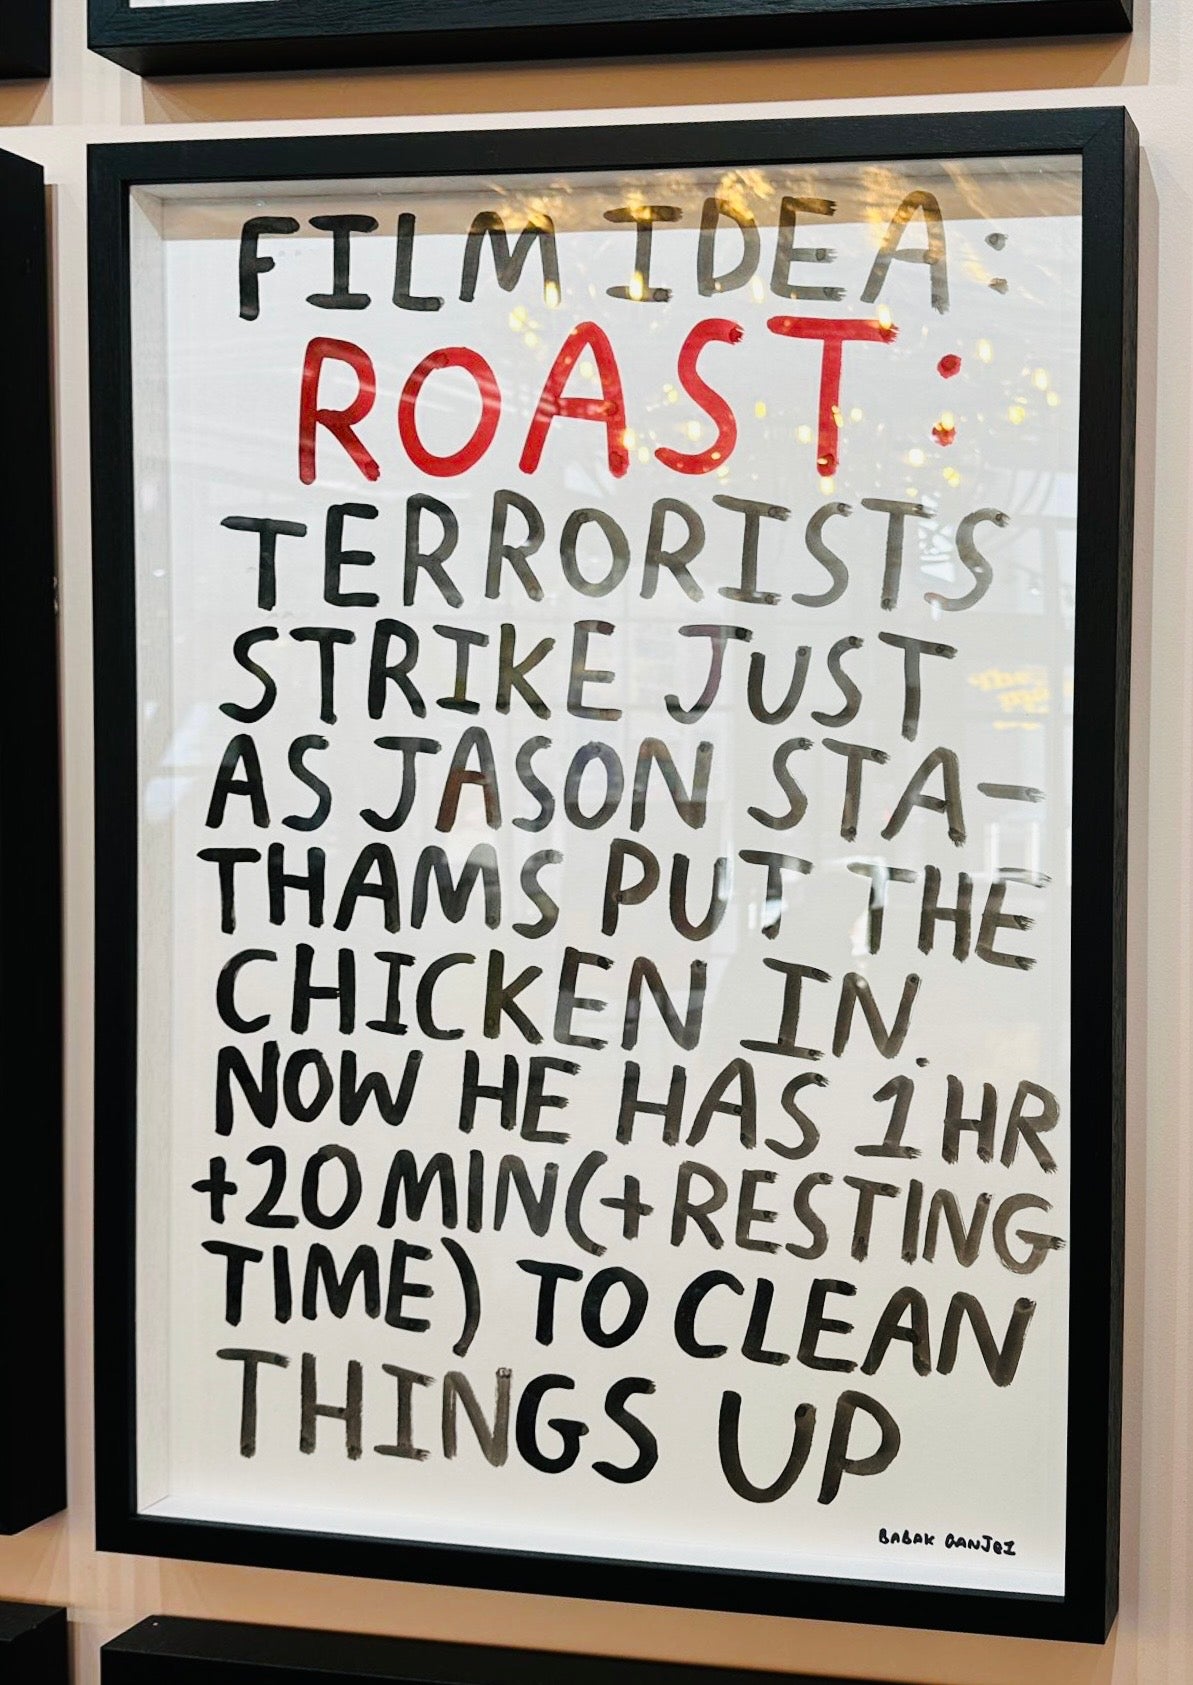 FILM IDEA:
ROAST:
TERRORISTS
STRIKE JUST
AS JASON STA-
THAMS PUT THE
CHICKEN IN.
NOW HE HAS 1 HR
+20 MIN (+ RESTING
TIME) TO CLEAN
THINGS UP
BABAK GANJEI